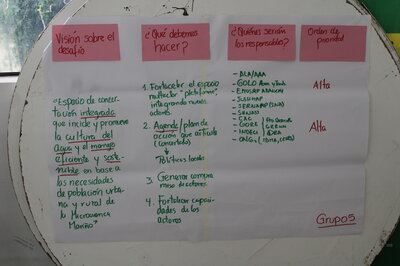 Visión sobre el
desafío
¿Qué debemos
hacer?
¿Quiénes serían
los responsables?
Orden de
prioridad
"Espacio de concer-
tación integrado
que incide y promueve
la cultura del
agua y el manejo
eficiente y soste-
nible en base a
las necesidades
de población urba-
na y rural de
la Microcuenca
Mariño"
1. Fortalecer el espacio
multiactor "plataforma",
integrando nuevos
actores
2. Agenda/plan de
acción que articula
(concertado)
Políticas locales
3. Generar compro
miso de actores
4. Fortalecer capaci-
dades de los
actores
- ALA/AAA
- GOLO
- EMUSAP ABANCAY
- SUNASS
- CAC
- GORE
- INDECI
- ONGs
Alta
Alta
Grupo 5